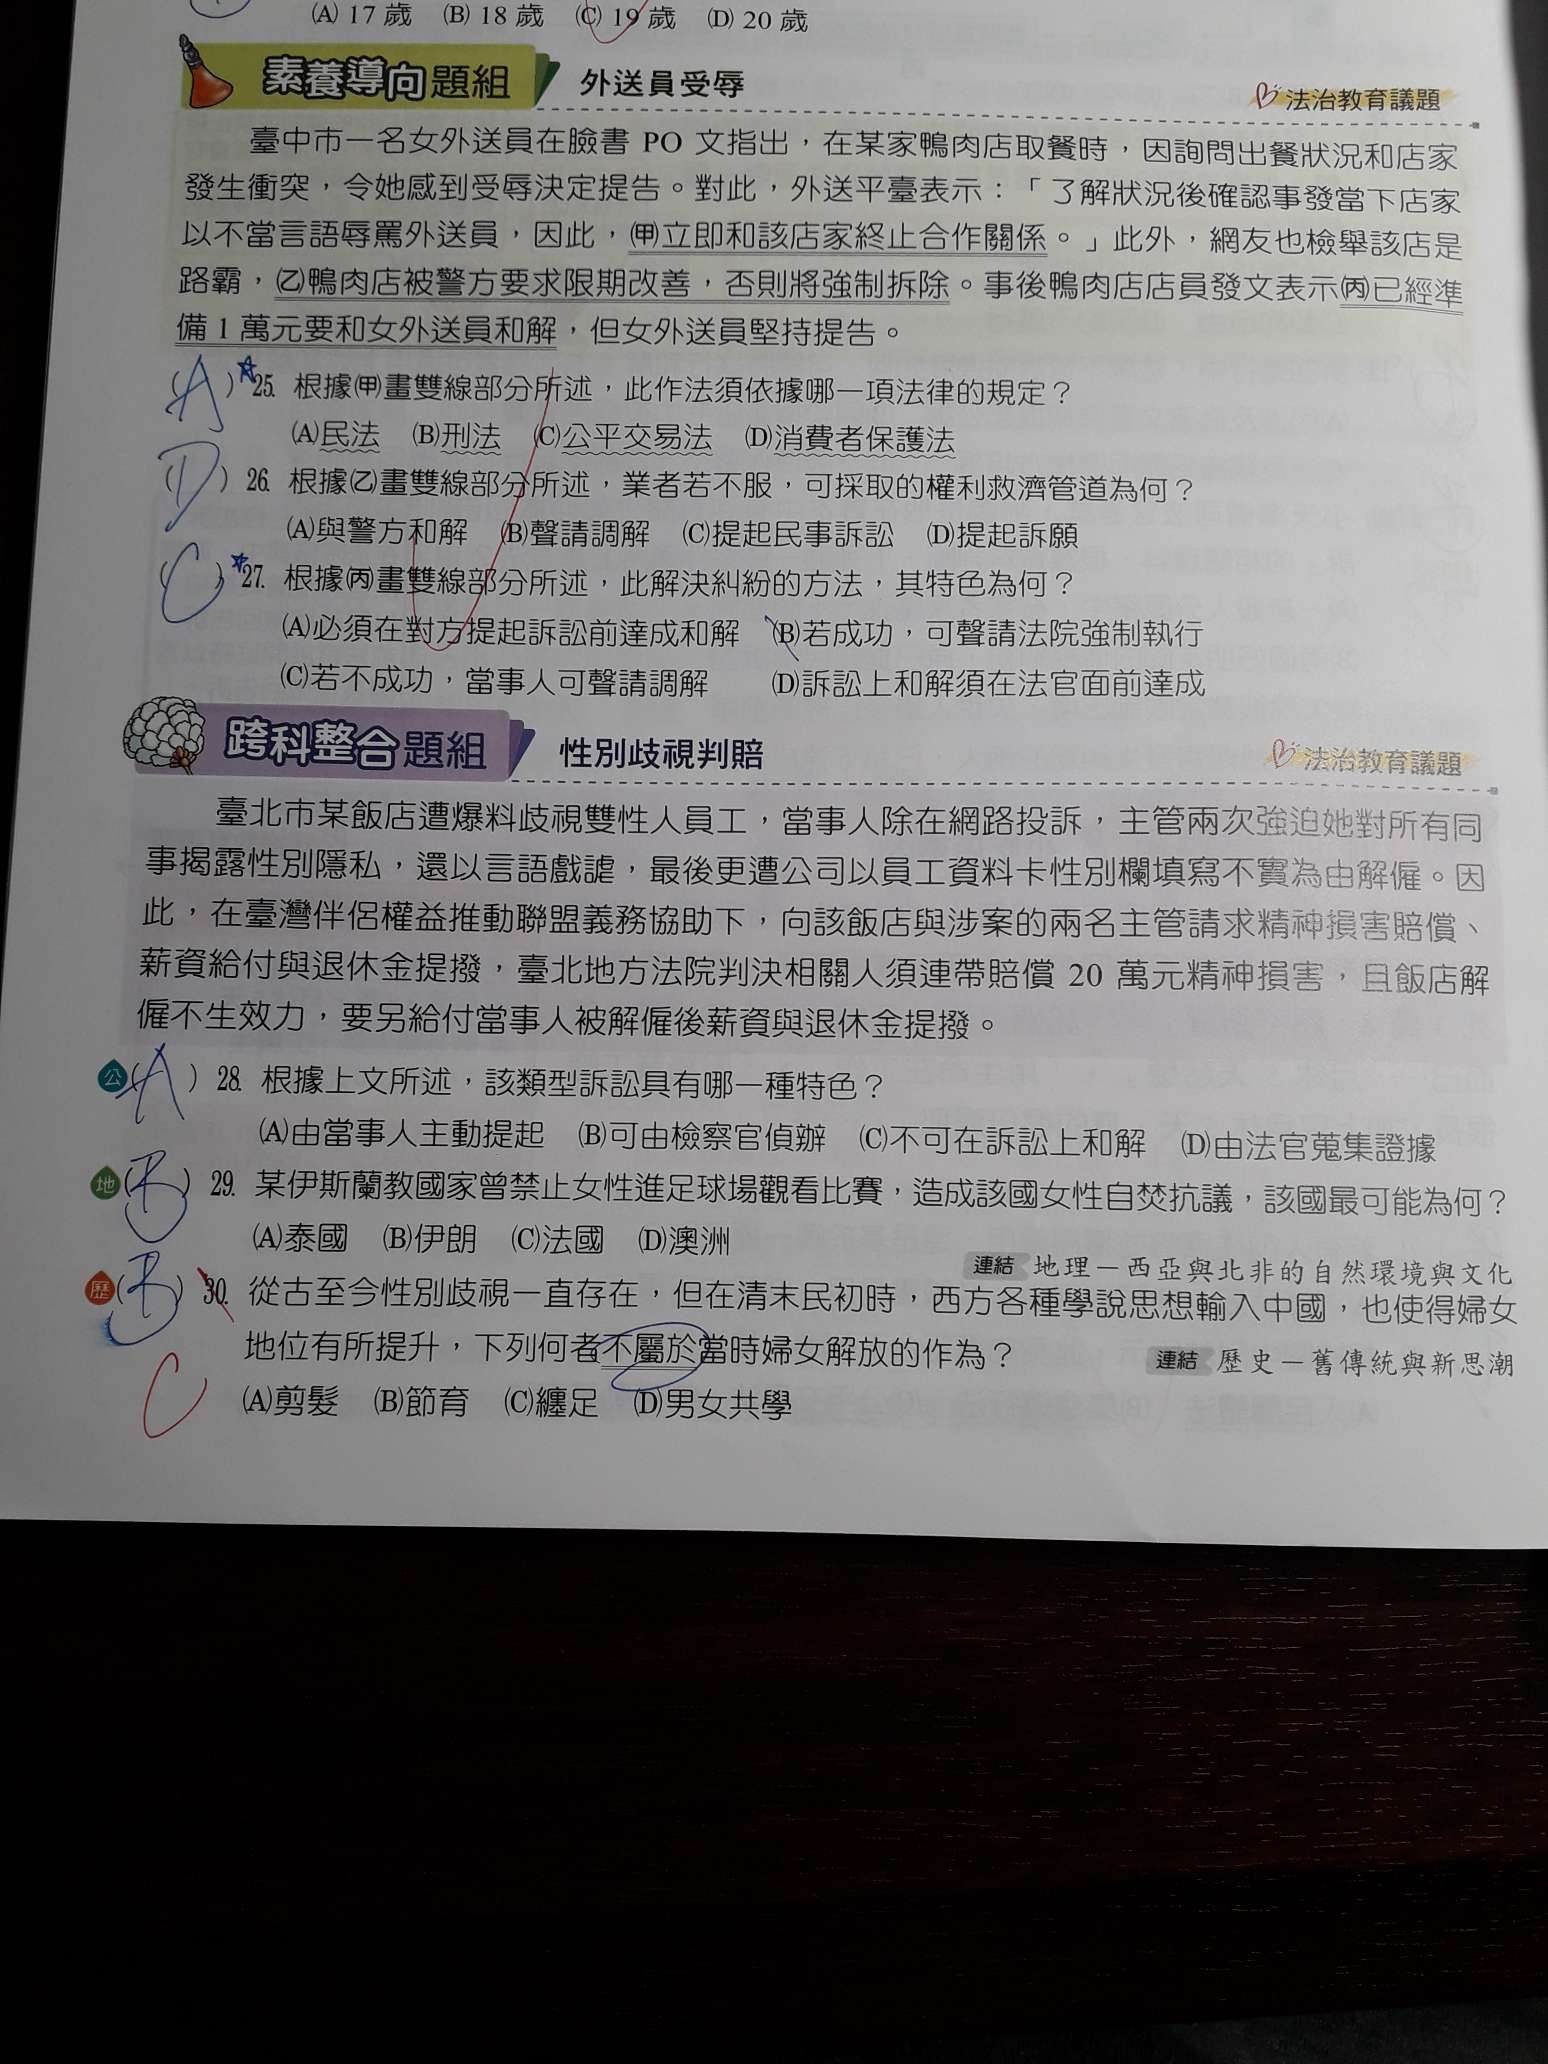 (A) 17 歲 (B) 18 歲 (C) 19 歲 (D) 20 歲
素養導向題組 外送員受辱 法治教育議題
臺中市一名女外送員在臉書 PO 文指出，在某家鴨肉店取餐時，因詢問出餐狀況和店家
發生衝突，令她感到受辱決定提告。對此，外送平臺表示：「了解狀況後確認事發當下店家
以不當言語辱罵外送員，因此，㈻立即和該店家終止合作關係。」此外，網友也檢舉該店是
路霸，(乙)鴨肉店被警方要求限期改善，否則將強制拆除。事後鴨肉店店員發文表示(丙)已經準
備 1 萬元要和女外送員和解，但女外送員堅持提告。
(A) ☆25. 根據(甲)畫雙線部分所述，此作法須依據哪一項法律的規定？
(A)民法 (B)刑法 (C)公平交易法 (D)消費者保護法
(D) 26. 根據(乙)畫雙線部分所述，業者若不服，可採取的權利救濟管道為何？
(A)與警方和解 (B)聲請調解 (C)提起民事訴訟 (D)提起訴願
(C) ☆27. 根據(丙)畫雙線部分所述，此解決糾紛的方法，其特色為何？
(A)必須在對方提起訴訟前達成和解 (B)若成功，可聲請法院強制執行
(C)若不成功，當事人可聲請調解 (D)訴訟上和解須在法官面前達成
跨科整合題組 性別歧視判賠 法治教育議題
臺北市某飯店遭爆料歧視雙性人員工，當事人除在網路投訴，主管兩次強迫她對所有同
事揭露性別隱私，還以言語戲謔，最後更遭公司以員工資料卡性別欄填寫不實為由解僱。因
此，在臺灣伴侶權益推動聯盟義務協助下，向該飯店與涉案的兩名主管請求精神損害賠償、
薪資給付與退休金提撥，臺北地方法院判決相關人須連帶賠償 20 萬元精神損害，且飯店解
僱不生效力，要另給付當事人被解僱後薪資與退休金提撥。
公 (A) 28. 根據上文所述，該類型訴訟具有哪一種特色？
(A)由當事人主動提起 (B)可由檢察官偵辦 (C)不可在訴訟上和解 (D)由法官蒐集證據
地 (B) 29. 某伊斯蘭教國家曾禁止女性進足球場觀看比賽，造成該國女性自焚抗議，該國最可能為何？
(A)泰國 (B)伊朗 (C)法國 (D)澳洲
連結 地理－西亞與北非的自然環境與文化
歷 (B) 30. 從古至今性別歧視一直存在，但在清末民初時，西方各種學說思想輸入中國，也使得婦女
地位有所提升，下列何者不屬於當時婦女解放的作為？
連結 歷史－舊傳統與新思潮
C
(A)剪髮 (B)節育 (C)纏足 (D)男女共學